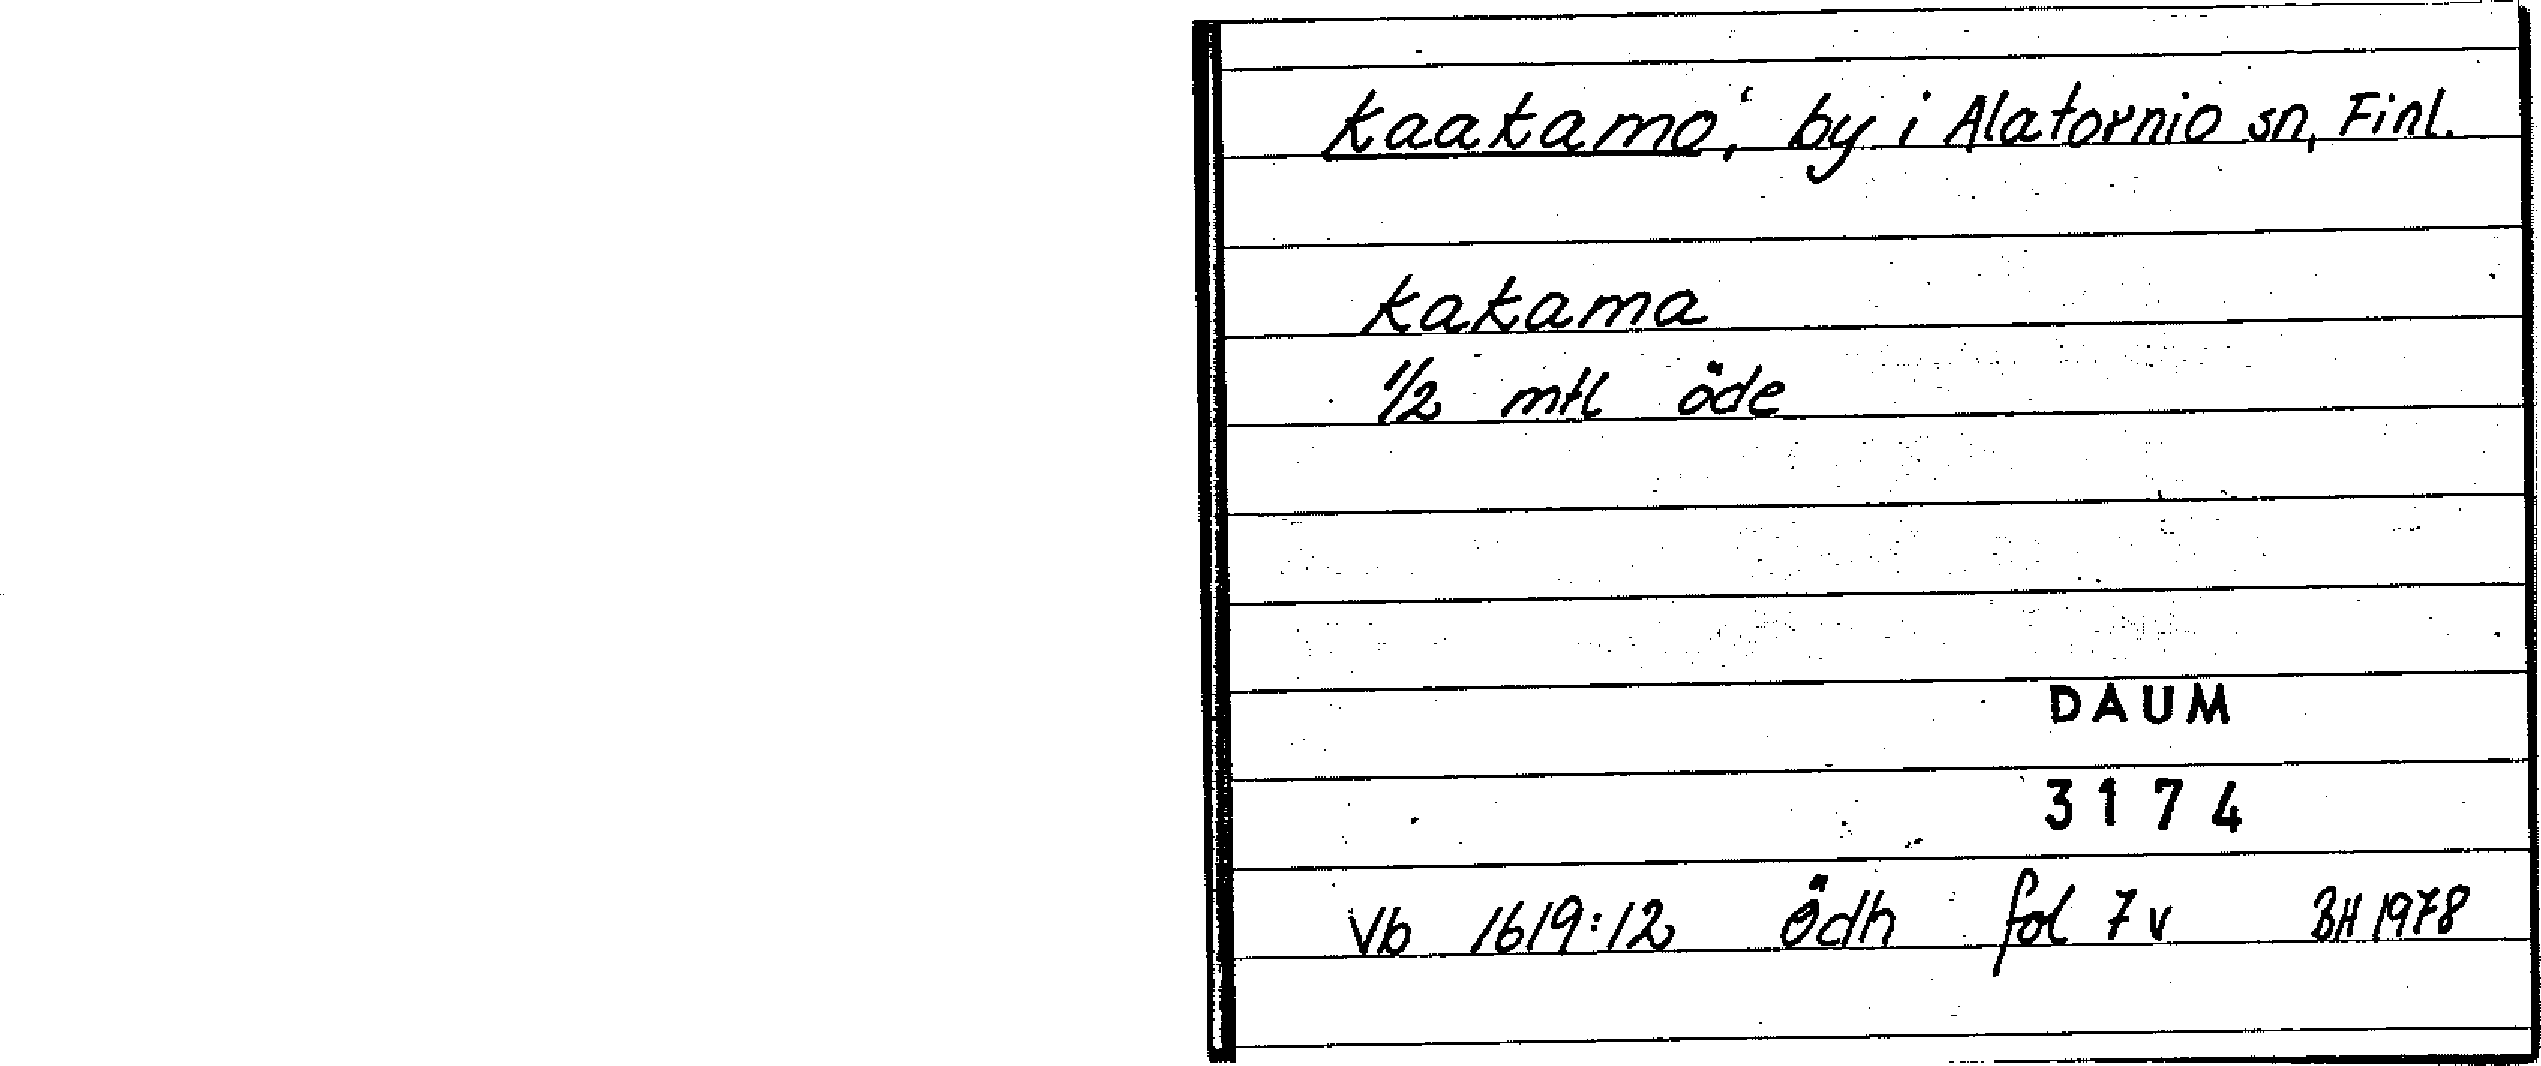 Kaakamo, by i Alatornio sn, Finl.
Kakama
1/2 mtl öde
DAUM
3174
Vb 1619:12 ödh fol 7v BH 1978